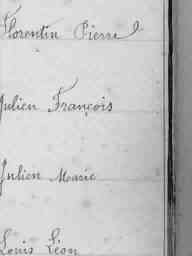 Florentin Pierre
Julien François
Julien Marie
Louis Léon